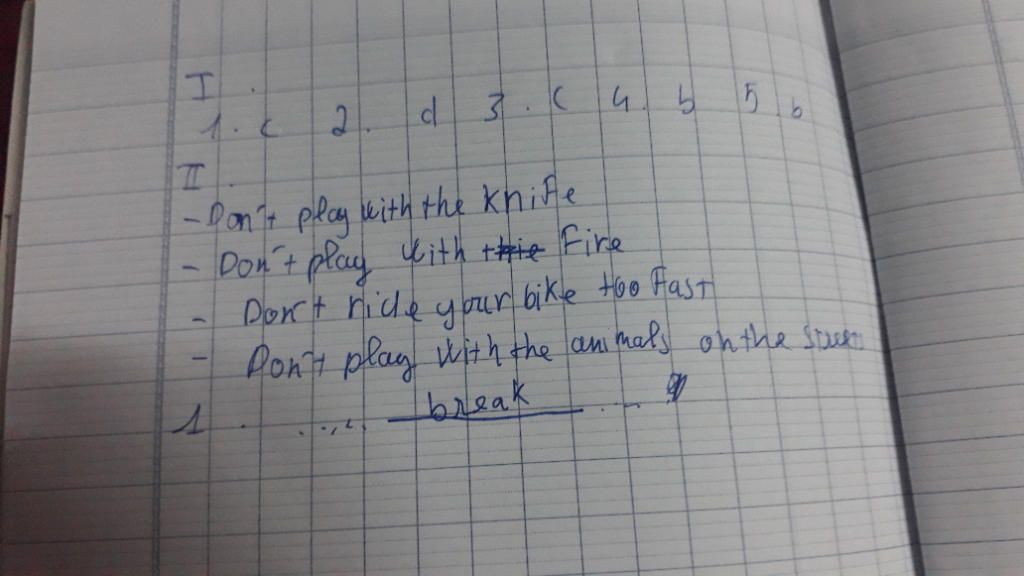 I.
1. c 2. d 3. c 4. b 5. b
II.
- Don't play with the knife
- Don't play with fire
- Don't ride your bike too fast
- Don't play with the animals on the
1. .... break ....